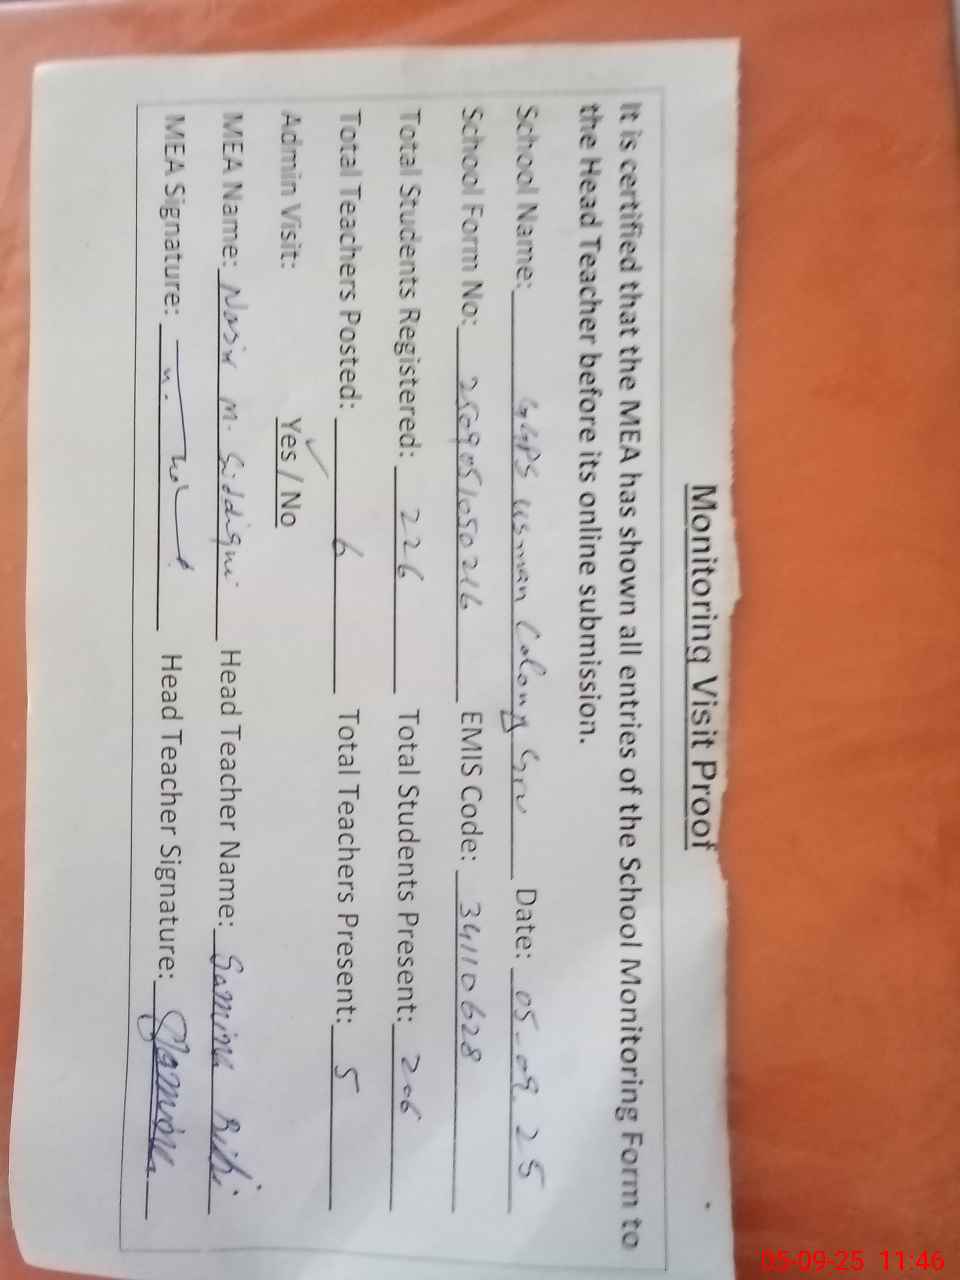 Monitoring Visit Proof
It is certified that the MEA has shown all entries of the School Monitoring Form to
the Head Teacher before its online submission.
School Name: GGPS Usman Colony Grw Date: 05-09-25
School Form No: 2509051050216 EMIS Code: 34110628
Total Students Registered: 226 Total Students Present: 206
Total Teachers Posted: 6 Total Teachers Present: 5
Admin Visit: Yes / No
MEA Name: Nasir M. Siddiqui Head Teacher Name: Samina Bibi
MEA Signature: Head Teacher Signature: Samina
05-09-25 11:46